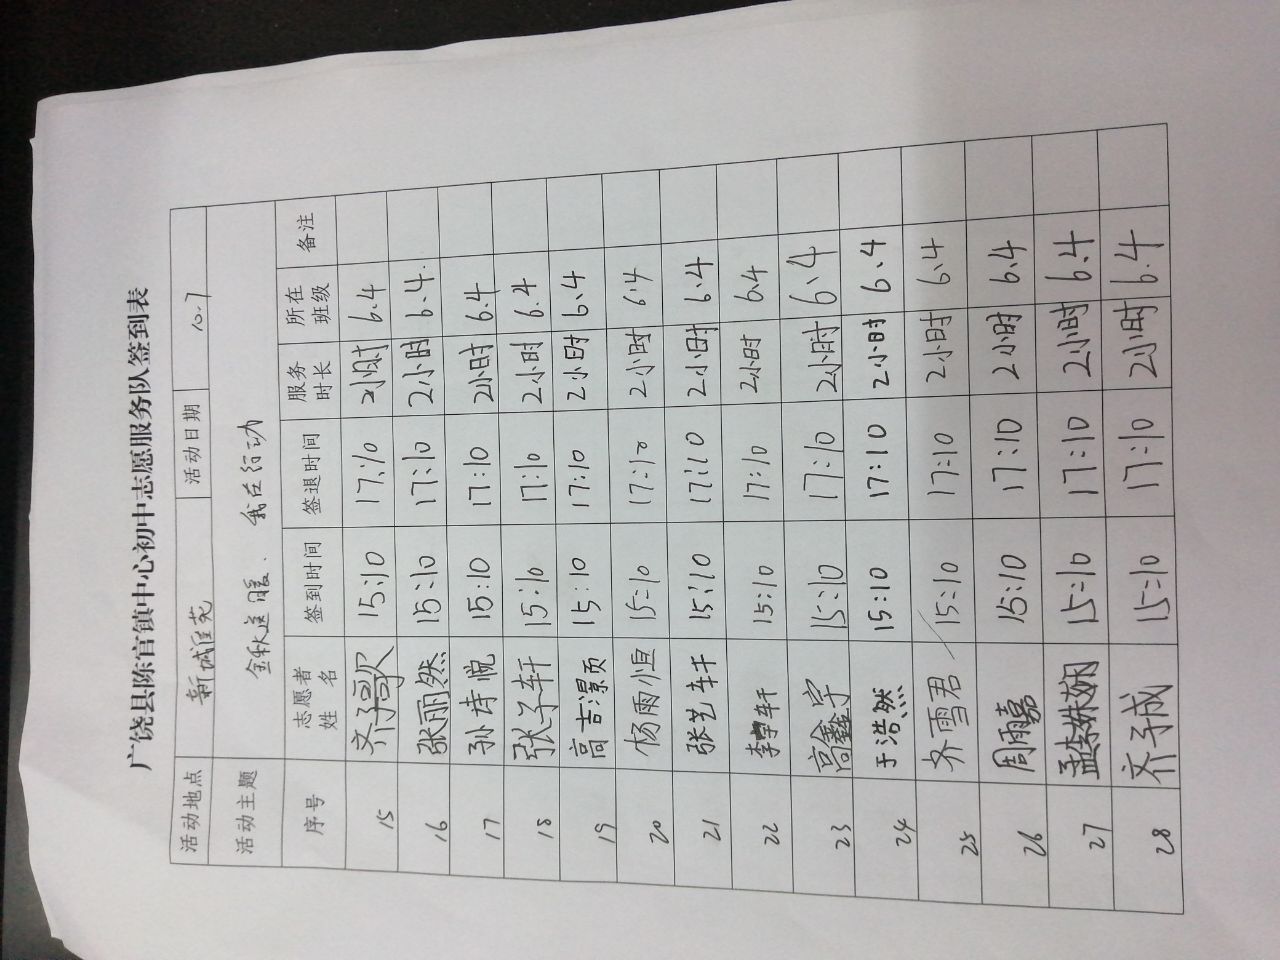 广饶县陈官镇中心初中志愿服务队签到表
活动地点 新城佳苑 活动日期 10.7
活动主题 金秋送暖、我在行动
序号 志愿者姓名 签到时间 签退时间 服务时长 所在班级 备注
15 齐子歌 15:10 17:10 2小时 6.4
16 张丽然 15:10 17:10 2小时 6.4.
17 孙诗悦 15:10 17:10 2小时 6.4
18 张子轩 15:10 17:10 2小时 6.4
19 高吉灏页 15:10 17:10 2小时 6.4
20 杨雨恒 15:10 17:10 2小时 6.4
21 张艺轩 15:10 17:10 2小时 6.4
22 李宇轩 15:10 17:10 2小时 6.4
23 高鑫宇 15:10 17:10 2小时 6、4
24 于浩然 15:10 17:10 2小时 6、4
25 齐雪君 15:10 17:10 2小时 6.4
26 周雨嘉 15:10 17:10 2小时 6.4
27 孟姝娴 15:10 17:10 2小时 6.4
28 齐子成 15:10 17:10 2小时 6.4